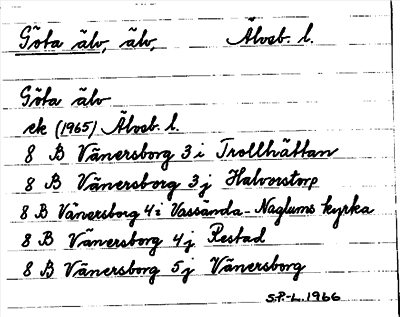 Göta älv, älv, Älvsb. l.
Göta älv
ek (1965) Älvsb. l.
8 B Vänersborg 3 i Trollhättan
8 B Vänersborg 3 j Halvorstorp
8 B Vänersborg 4 i Vassända-Naglums kyrka
8 B Vänersborg 4 j Restad
8 B Vänersborg 5 j Vänersborg
S.P.-L. 1966